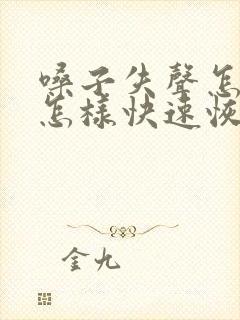 嗓子失聲怎
怎樣快速恢
金九